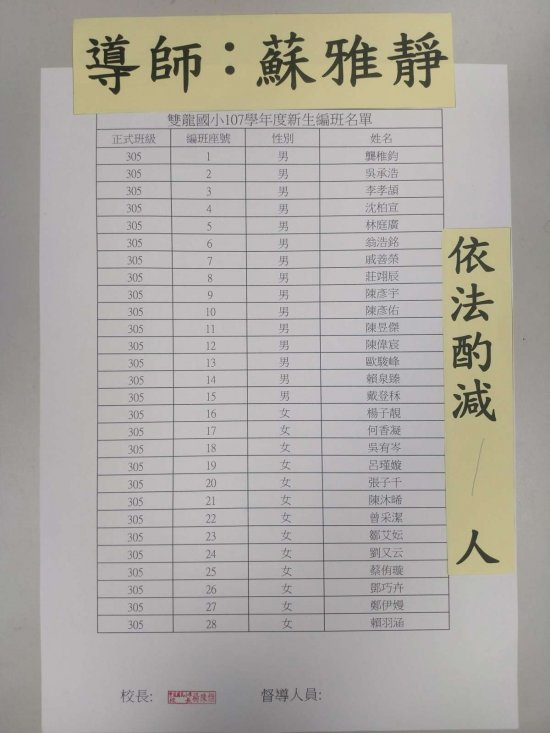 導師：蘇雅靜
雙龍國小107學年度新生編班名單
正式班級 編班座號 性別 姓名
305 1 男 龔稚鈞
305 2 男 吳承浩
305 3 男 李孝頡
305 4 男 沈柏宣
305 5 男 林庭廣
305 6 男 翁浩銘
305 7 男 戚善榮
305 8 男 莊翊辰
305 9 男 陳彥宇
305 10 男 陳彥佑
305 11 男 陳昱傑
305 12 男 陳偉宸
305 13 男 歐駿峰
305 14 男 賴泉臻
305 15 男 戴登秝
305 16 女 楊子靚
305 17 女 何香凝
305 18 女 吳宥岑
305 19 女 呂瑾嫙
305 20 女 張子千
305 21 女 陳沐晞
305 22 女 曾采潔
305 23 女 鄒艾妘
305 24 女 劉又云
305 25 女 蔡侑璇
305 26 女 鄧巧卉
305 27 女 鄭伊嫚
305 28 女 賴羽涵
依法酌減 / 人
校長: 督導人員: